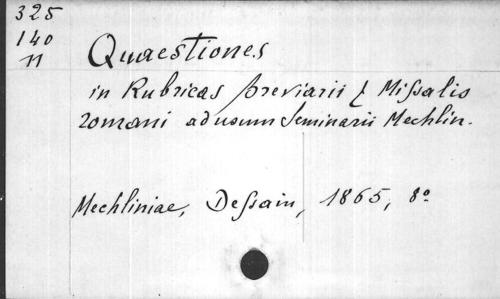 325
140
n
Quaestiones
in Rubricas Breviarii & Missalis
romani ad usum Seminarii Mechlin.
Mechliniae, Dessain, 1865, 8º